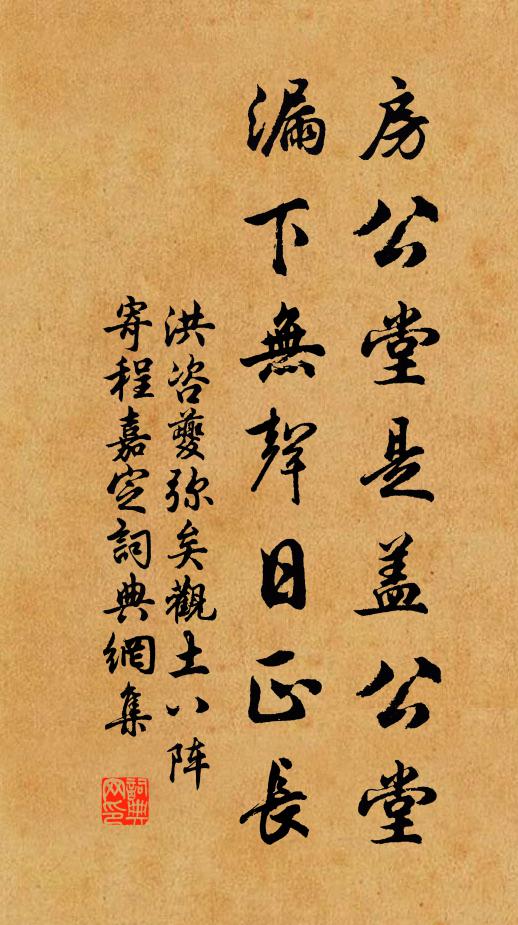 房公堂是盖公堂
漏下無聲日正長
洪咨夔弥矣觀土八阵
寄程嘉定詞典網集
詞典网印